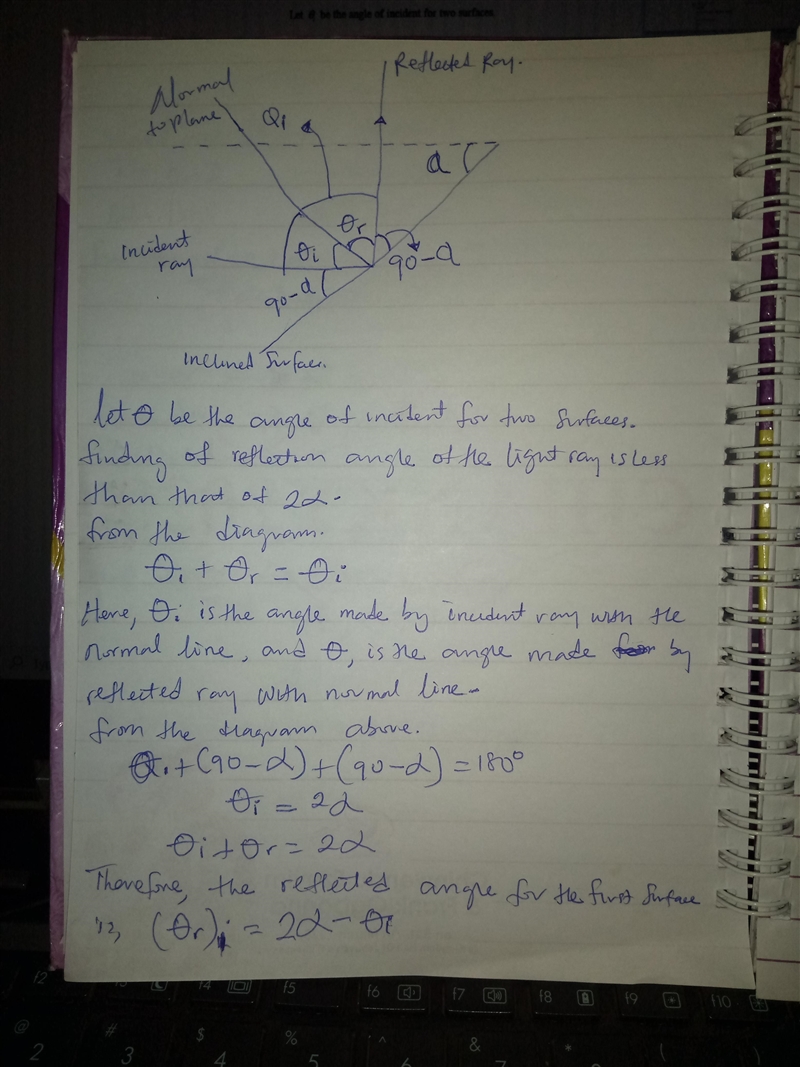 Let θ be the angle of incident for two surfaces
Normal
to plane
Reflected Ray.
Q1
α
θr
Incident
ray
θi
90-α
90-α
Inclined Surface.
let θ be the angle of incident for two surfaces.
finding of reflection angle of the light ray is less
than that of 2α.
from the diagram.
θi + θr = θi
Here, θi is the angle made by incident ray with the
normal line, and θ, is the angle made by
reflected ray with normal line.
from the diagram above.
θi+(90-α)+(90-α)=180°
θi = 2α
θi+θr = 2α
Therefore, the reflected angle for the first surface
is, (θr)i = 2α-θi
f2
f4
f5
f6
f7
f8
f9
f10
@
2
#
3
$
4
%
5
^
6
&
7
*
8